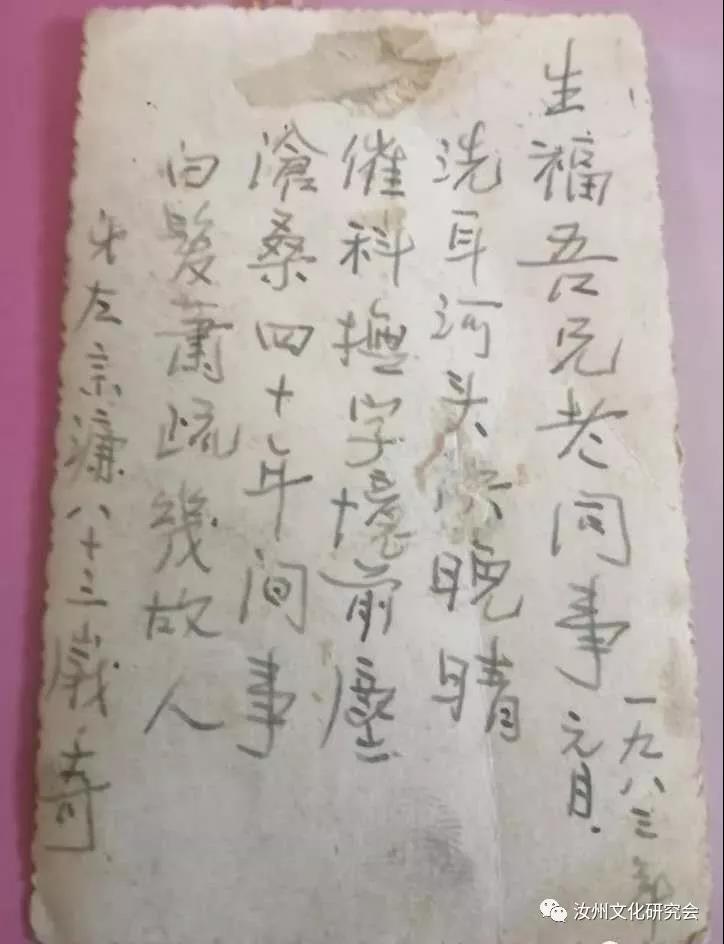 生福吾兄老同事
一九八三年
元月.
洗耳河头 晚晴
催科撫字憶前塵
滄桑四十年间事
白髮蕭疏幾故人
弟左宗濂八十三歲寄
汝州文化研究会